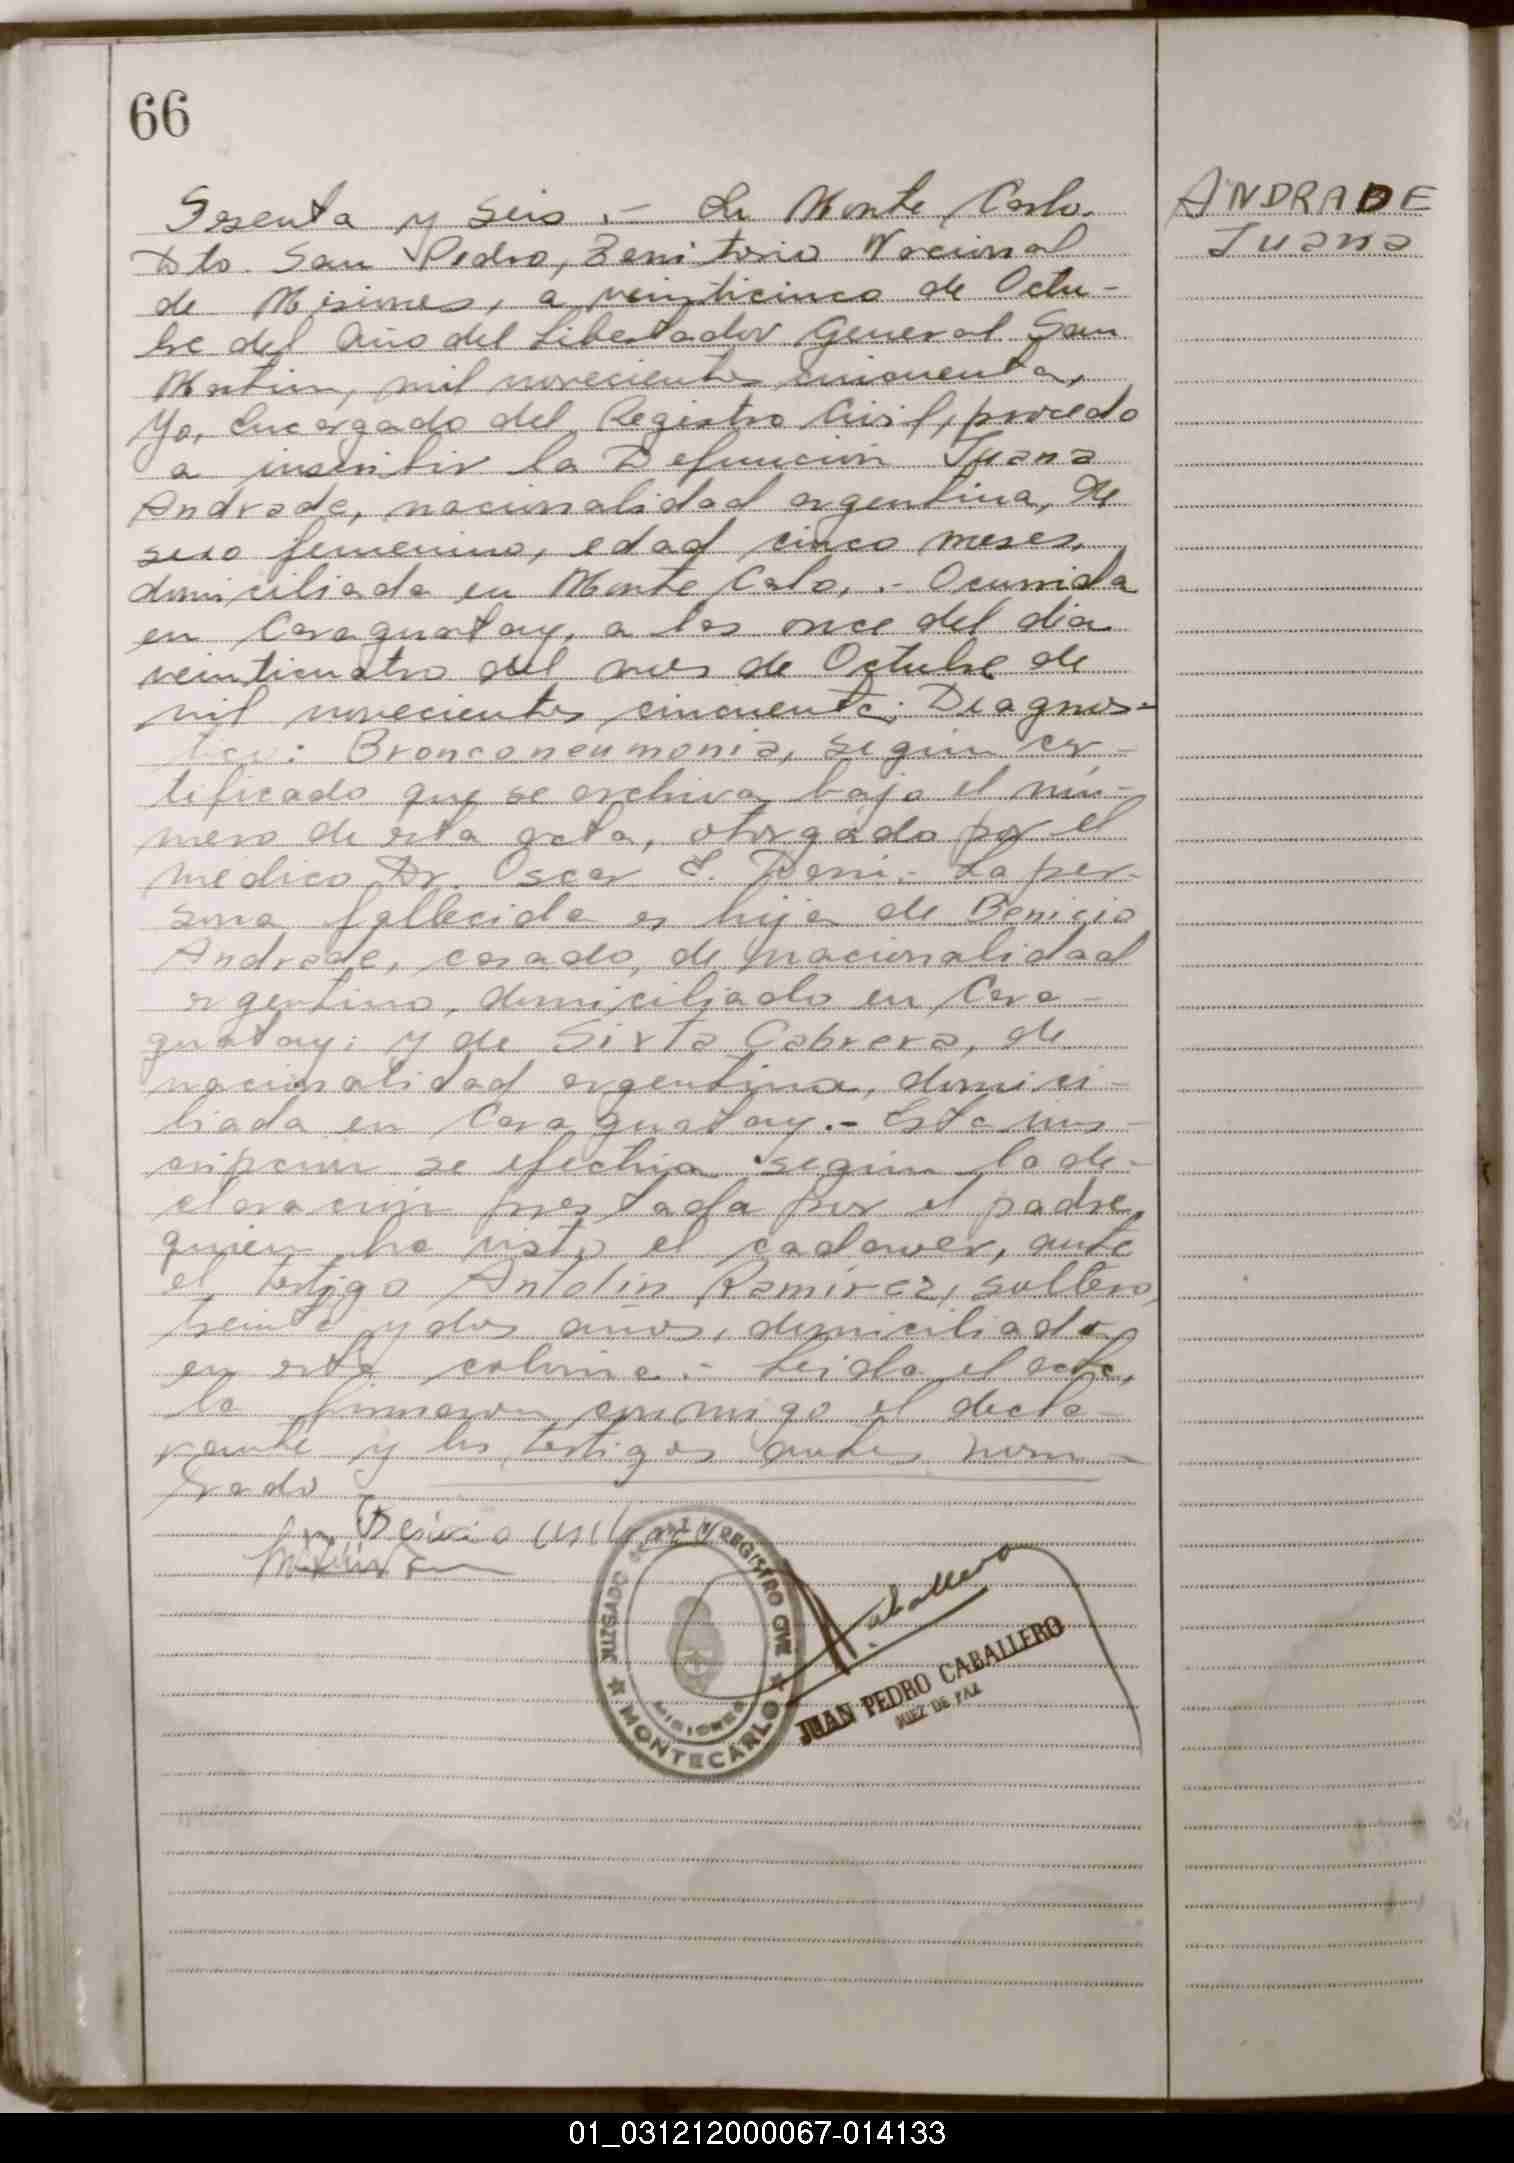 66
ANDRADE
Juana
Sesenta y Seis .- En Monte Carlo.
Dto. San Pedro, Territorio Nacional
de Misiones, a veinticinco de Octu-
bre del Año del Libertador General San
Martin, mil novecientos cincuenta,
Yo, Encargado del Registro Civil, procedo
a inscribir la Defuncion Juana
Andrade, nacionalidad argentina, de
sexo femenino, edad cinco meses,
domiciliada en Monte Carlo, .- Ocurrida
en Caraguatay, a las once del dia
veinticuatro del mes de Octubre de
mil novecientos cincuenta; Diagnos-
tico: Bronconeumonia, según cer-
tificado que se archiva bajo el nú-
mero de esta acta, otorgado por el
médico Dr. Oscar .- La per-
sona fallecida es hija de Benicio
Andrade, casado, de nacionalidad
argentino, domiciliado en Cara-
guatay; y de Sixta Cabrera, de
nacionalidad argentina, domici-
liada en Caraguatay.- Esta ins-
cripcion se efectúa según la de-
claración prestada por el padre,
quien ha visto el cadaver, ante
el testigo Antolin Ramirez, soltero,
treinta y dos años, domiciliado
en esta colonia.- Leida el acta,
la firmaron conmigo el decla-
rante y los testigos antes nom-
brado
Benicio
JUZGADO DE PAZ Y REGISTRO CIVIL
MISIONES
MONTECARLO
Caballero
JUAN PEDRO CABALLERO
JUEZ DE PAZ
01_031212000067-014133